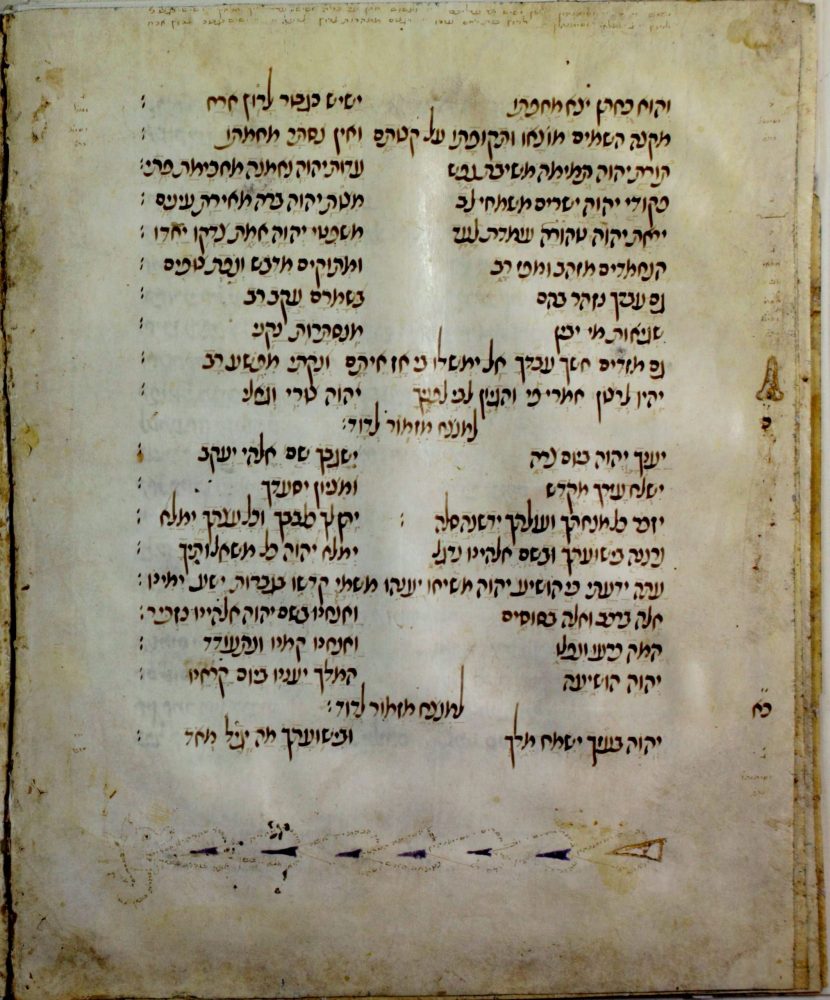 והוא כחתן יצא מחפתו ישיש כגבור לרוץ ארח :
מקצה השמים מוצאו ותקופתו על קצותם ואין נסתר מחמתו :
תורת יהוה תמימה משיבת נפש עדות יהוה נאמנה מחכימת פתי :
פקודי יהוה ישרים משמחי לב מצות יהוה ברה מאירת עינים :
יראת יהוה טהורה עמדת לעד משפטי יהוה אמת צדקו יחדו :
הנחמדים מזהב ומפז רב ומתוקים מדבש ונפת צופים :
גם עבדך נזהר בהם בשמרם עקב רב :
שגיאות מי יבין מנסתרות נקני :
גם מזדים חשך עבדך אל ימשלו בי אז איתם ונקיתי מפשע רב :
יהיו לרצון אמרי פי והגיון לבי לפניך יהוה צורי וגאלי :
למנצח מזמור לדוד :
יענך יהוה ביום צרה ישגבך שם אלהי יעקב :
ישלח עזרך מקדש ומציון יסעדך :
יזכר כל מנחתך ועולתך ידשנה סלה : יתן לך כלבבך וכל עצתך ימלא :
נרננה בישועתך ובשם אלהינו נדגל ימלא יהוה כל משאלותיך :
עתה ידעתי כי הושיע יהוה משיחו יענהו משמי קדשו בגברות ישע ימינו :
אלה ברכב ואלה בסוסים ואנחנו בשם יהוה אלהינו נזכיר :
המה כרעו ונפלו ואנחנו קמנו ונתעדד :
יהוה הושיעה המלך יעננו ביום קראנו :
למנצח מזמור לדוד :
כא
יהוה בעזך ישמח מלך ובישועתך מה יגל מאד :